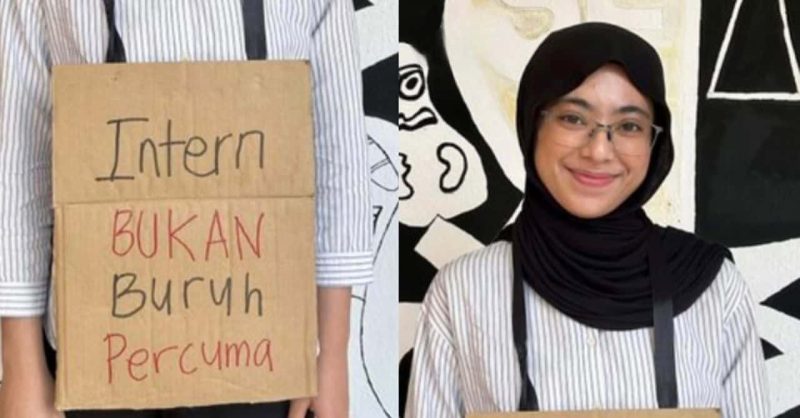 Intern
BUKAN
Buruh
Percuma